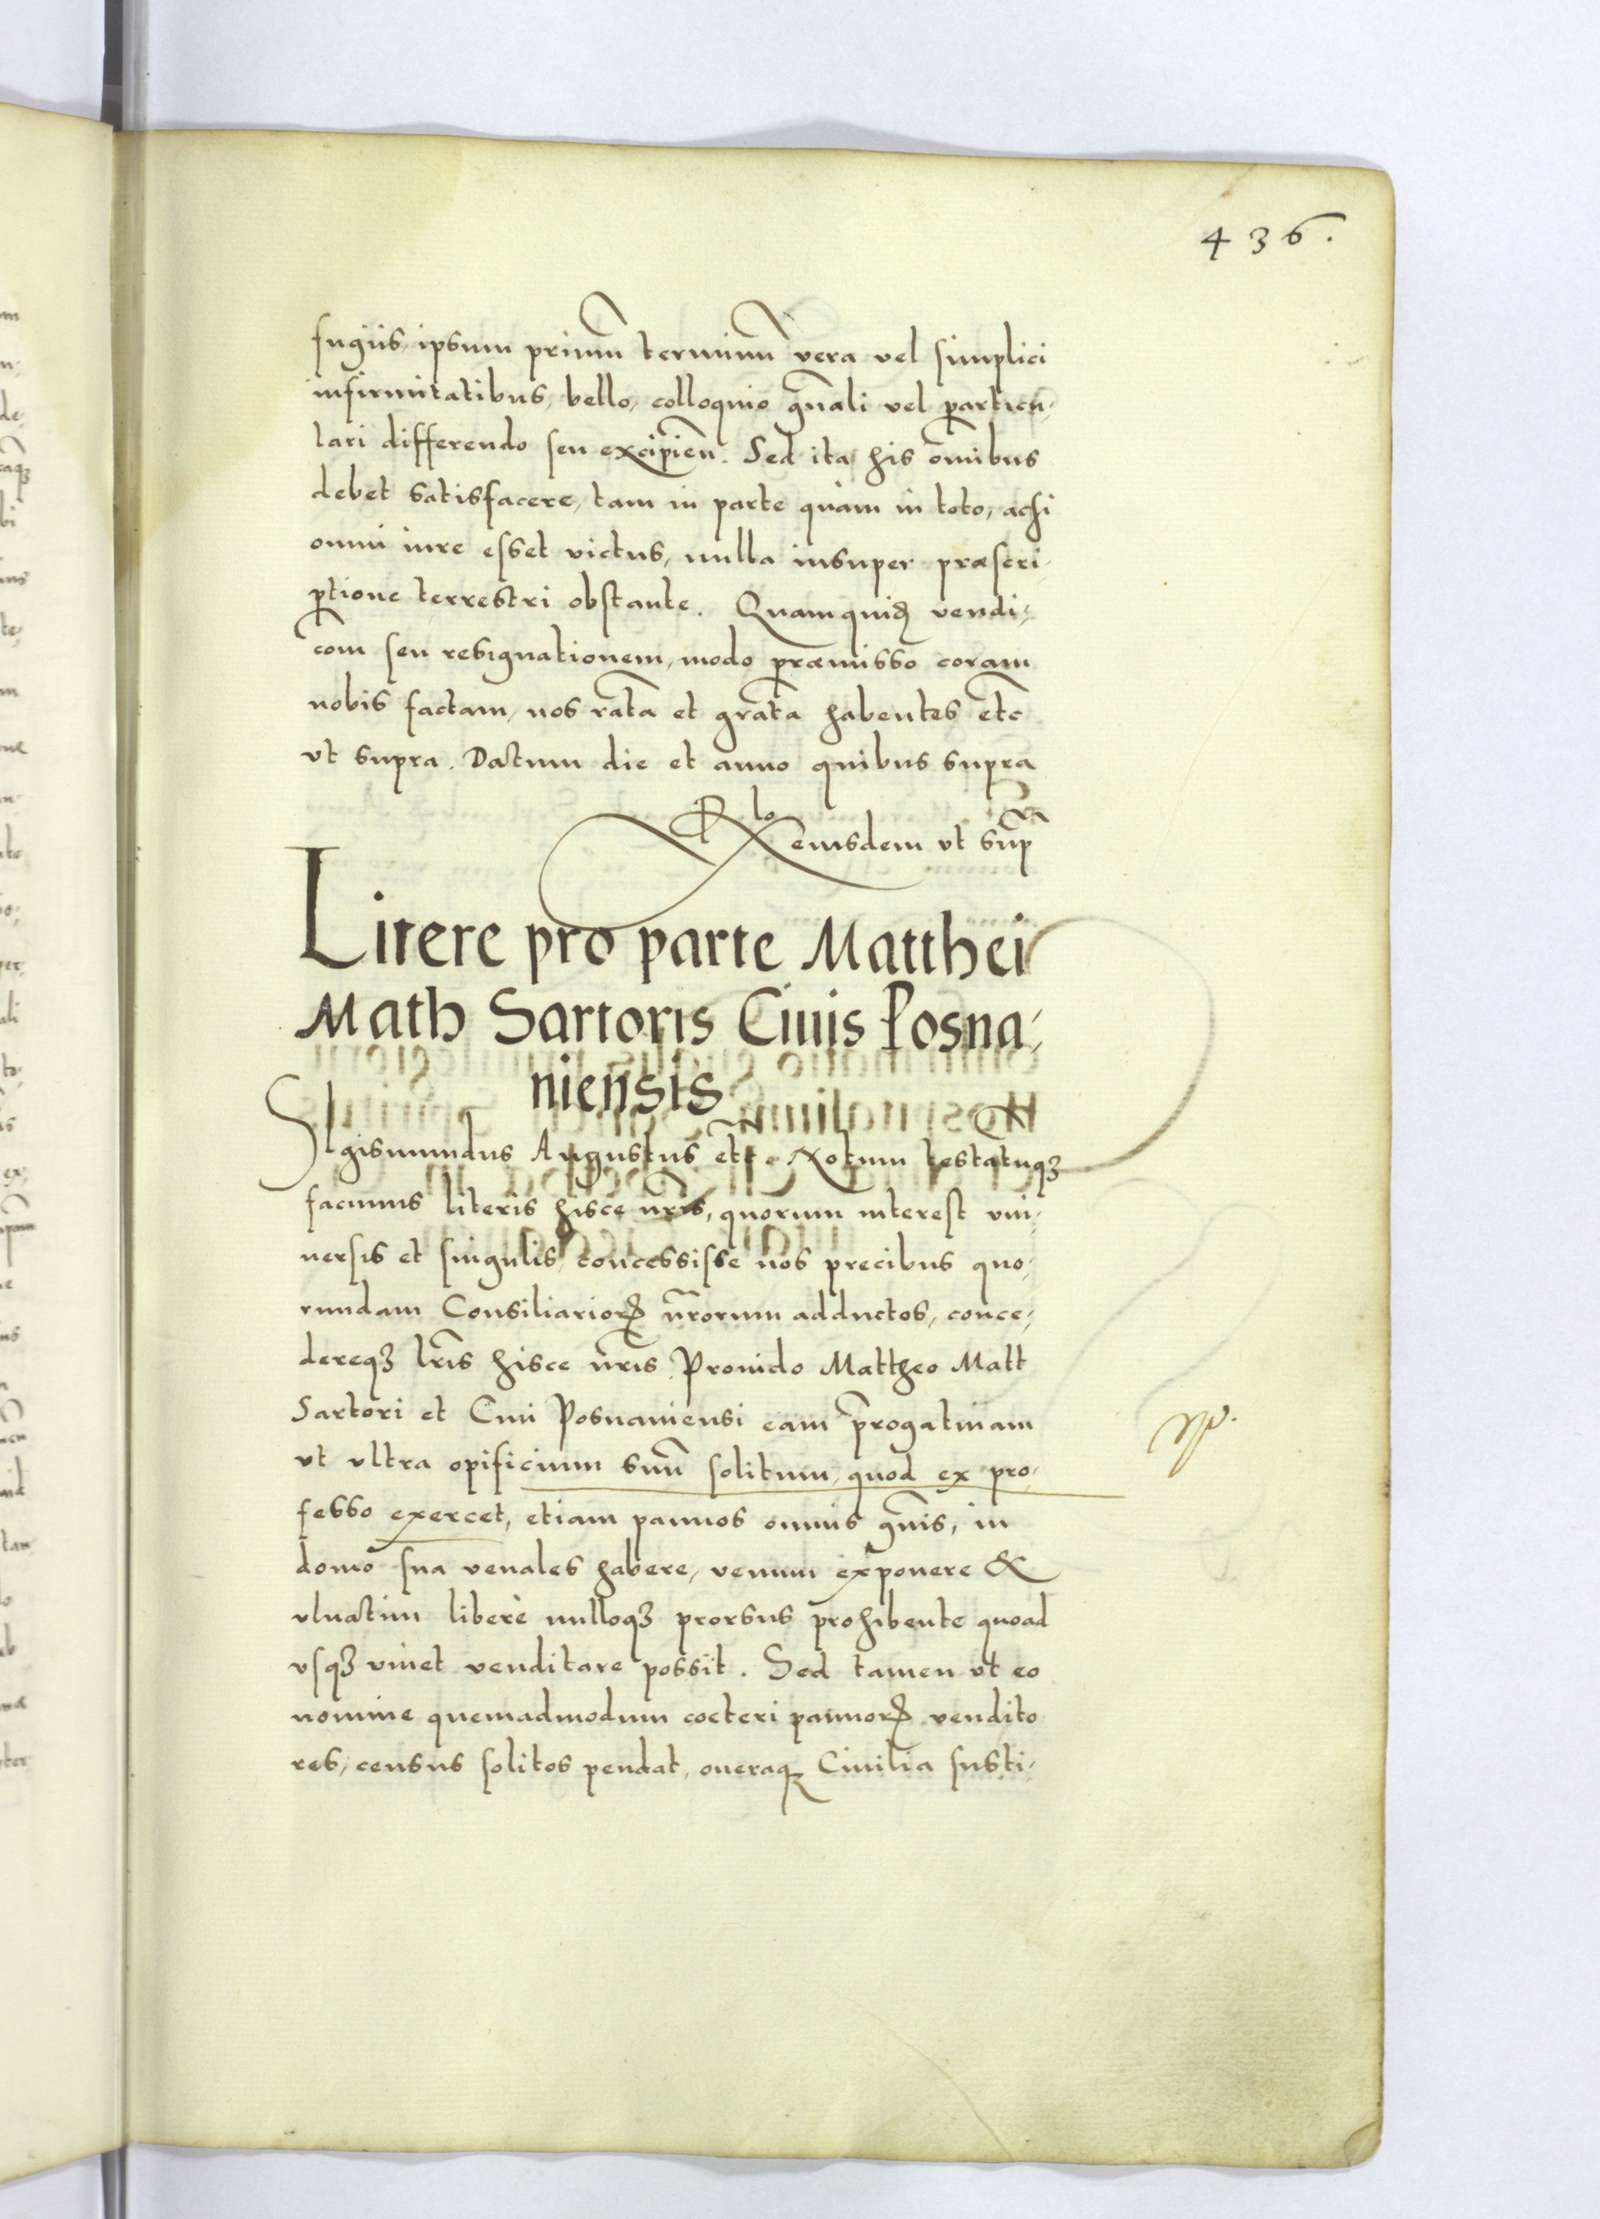 436.
fugiis, ipsum primū terminū vera vel simplici
infirmitatibus, bello, colloquio gn̄ali vel particu-
lari differendo seu excipien̄. Sed ita his om̄ibus
debet satisfacere, tam in parte quàm in toto, acsi
omni iure esset victus, nulla insuper præscri-
ptione terrestri obstante. Quamquid vendi-
com̄ seu resignationem, modo præmisso coram
nobis factam, nos rāta et grāta habentes etc̄
vt supra. Datum die et anno quibus supra
Rlo eiusdem vt sup̄ra
Litere pro parte Matthei
Math Sartoris Ciuis Posna-
niensis
Sigismundus Augustus etc̄. Notum testatuqȝ
facimus literis hisce nr̄is, quorum interest vni-
uersis et singulis, concessisse nos precibus quo-
rundam Consiliarioꝝ nr̄orum adductos, conce-
dereqȝ lr̄is hisce nr̄is Prouido Mattheo Matt
Sartori et Ciui Posnaniensi eam p̄rogatiuam
vt vltra opificium suū solitum, quod ex pro-
fesso exercet, etiam pannos omnis gn̄is, in
domo sua venales habere, venum exponere &
vlnatim liberè nulloqȝ prorsus prohibente quoad
vsqȝ viuet venditare possit. Sed tamen vt eo
nomine quemadmodum cæteri pannoꝝ vendito
res, census solitos pendat, oneraqꝫ Ciuilia susti-